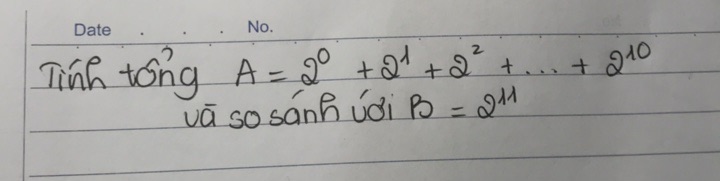 Date . . . No.
Tính tổng A = 2⁰ + 2¹ + 2² + ... + 2¹⁰
và so sánh với B = 2¹¹